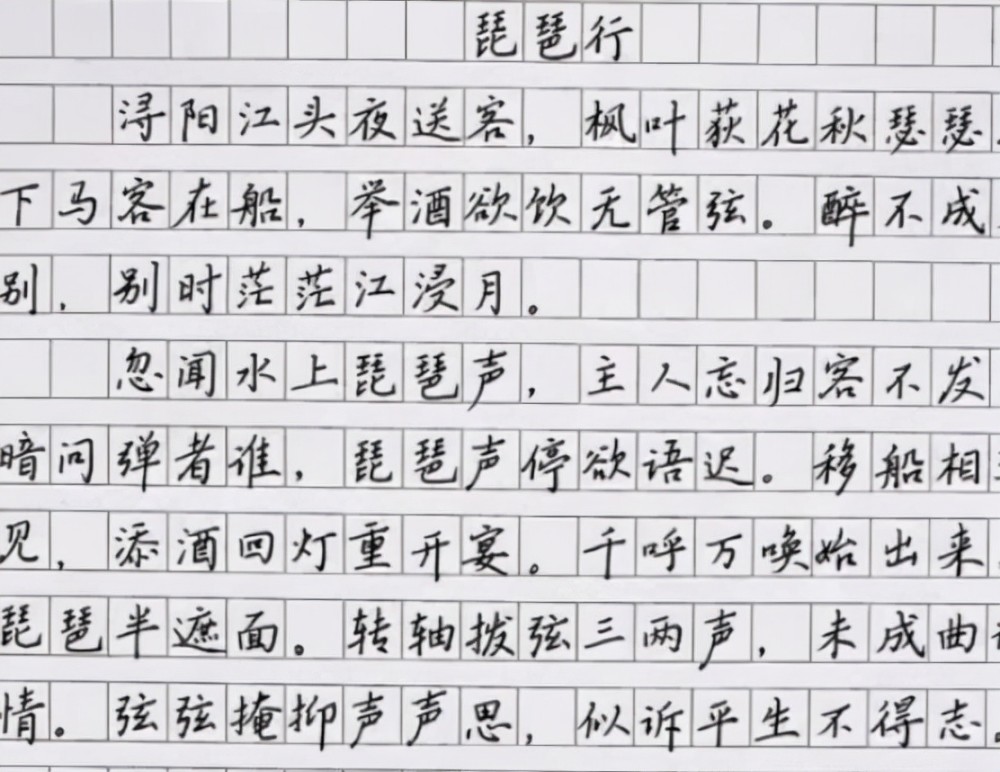 琵琶行
浔阳江头夜送客，枫叶荻花秋瑟瑟。
下马客在船，举酒欲饮无管弦。醉不成
别，别时茫茫江浸月。
忽闻水上琵琶声，主人忘归客不发
暗问弹者谁，琵琶声停欲语迟。移船相
见，添酒回灯重开宴。千呼万唤始出来
琵琶半遮面。转轴拨弦三两声，未成曲
情。弦弦掩抑声声思，似诉平生不得志。